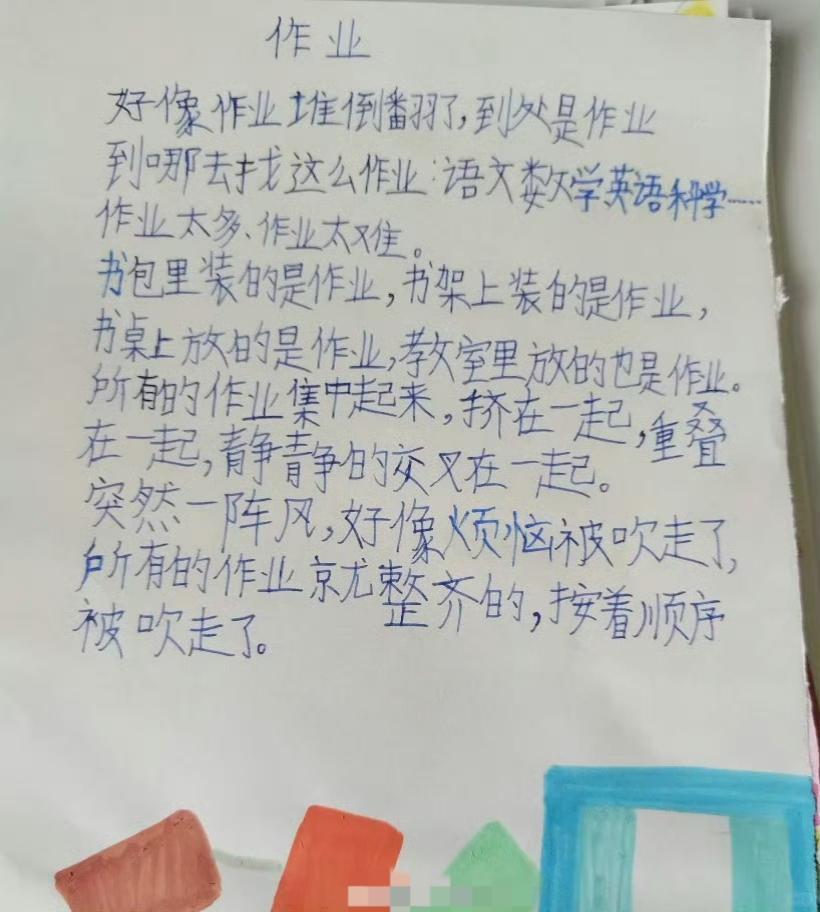 作业
好像作业堆倒翻了,到处是作业
到哪去找这么作业:语文数学英语科学……
作业太多、作业太难。
书包里装的是作业,书架上装的是作业,
书桌上放的是作业,教室里放的也是作业。
所有的作业集中起来,挤在一起,重叠
在一起,静静的交叉在一起。
突然一阵风,好像烦恼被吹走了,
所有的作业就整齐的,按着顺序
被吹走了。